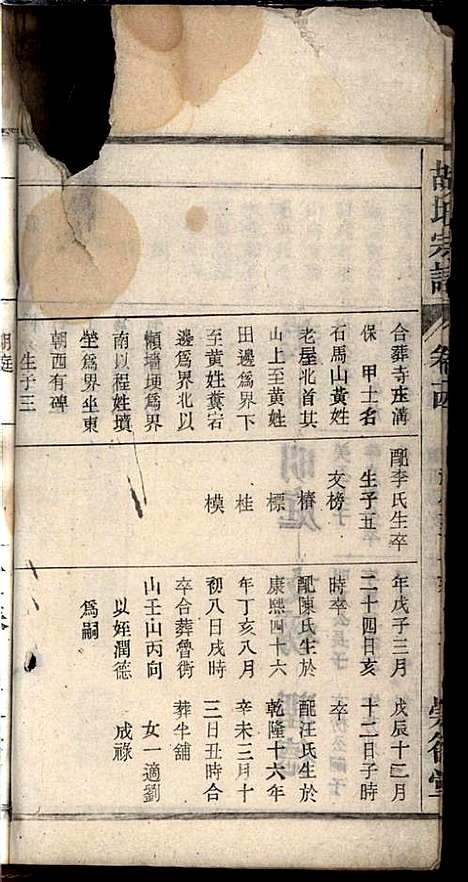 胡氏宗譜
卷十四
合葬寺庄溝
保　甲土名
石馬山黃姓
老屋北首其
山上至黃姓
田邊爲界下
至黃姓糞宕
邊爲界北以
懶墻埂爲界
南以程姓墳
塋爲界坐東
朝西有碑
生子三
配李氏生卒
生子五
文榜
樁
標
桂
模
年戊子三月
二十四日亥
時卒
配陳氏生於
康熙四十六
年丁亥八月
初八日戌時
卒合葬魯衖
山壬山丙向
以姪潤德
爲嗣
戊辰十二月
十二日子時
卒
配汪氏生於
乾隆十六年
辛未三月十
三日丑時合
葬牛舖
女一適劉
成祿